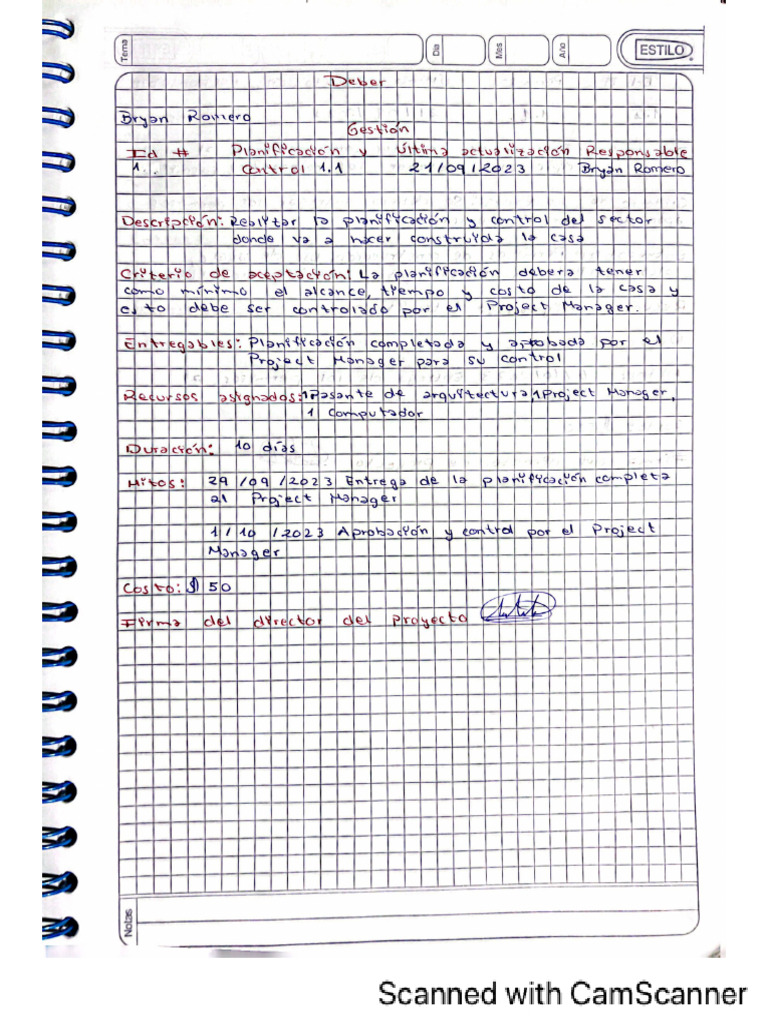 Tema
Dia
Mes
Año
ESTILO
Deber
Bryan Romero
Gestión
Id # Planificación y Última actualización Responsable
1 Control 1.1 21/09/2023 Bryan Romero
Descripción: Realitar la planificación y control del sector
donde va a hacer construida la casa
Criterio de aceptación: La planificación debera tener
como mínimo el alcance, tiempo y costo de la casa y
esto debe ser controlado por el Project Manager.
Entregables: Planificación completada y aprobada por el
Project Manager para su control
Recursos asignados: 1 Pasante de arquitectura, 1 Project Manager,
1 Computador
Duración: 10 días
Hitos: 29/09/2023 Entrega de la planificación completa
al Project Manager
1/10/2023 Aprobación y control por el Project
Manager
Costo: $ 50
Firma del director del proyecto
Notas
Scanned with CamScanner